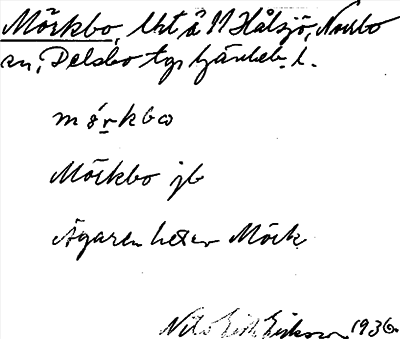 Mörkbo, lht å N Hålsjö, Norrbo
sn, Delsbo tgs Gävleb. l.
mórkbω
Mörkbo jb
Ägaren heter Mörk
Nils Erik Eriksson 1936